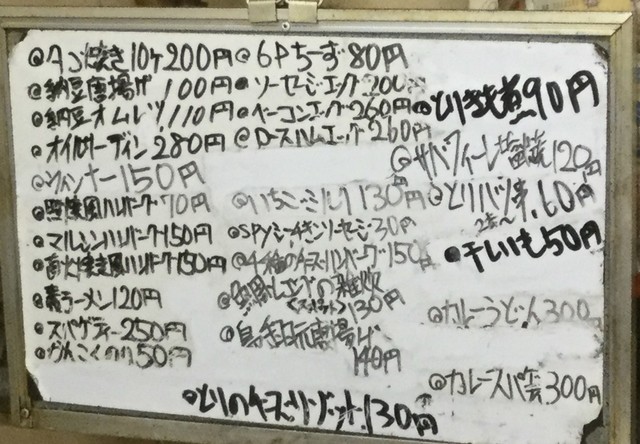 @タコ焼き10ケ200円
@納豆唐揚げ100円
@納豆オムレツ110円
@オイルサーディン280円
@ウィンナー150円
ハンバーグ70円
@マルシンハンバーグ150円
@直火焼風ハンバーグ150円
@素ラーメン120円
@スパゲティー250円
@かんこくのり50円
@6Pちーず80円
@ソーセージエッグ200
@ベーコンエッグ260円
@ロースハムエッグ260円
@いちごミルク130円
@spyシーチキンソーセージ30円
@4種のチーズハンバーグ150円
の雑炊
130円
唐揚げ
140円
とりきも煮90円
@サバフィーレ 120円
@とりハツ串60円
2本〜
干しいも50円
@カレーうどん300
@カレースパ 300円
@とりのチーズリゾット130円